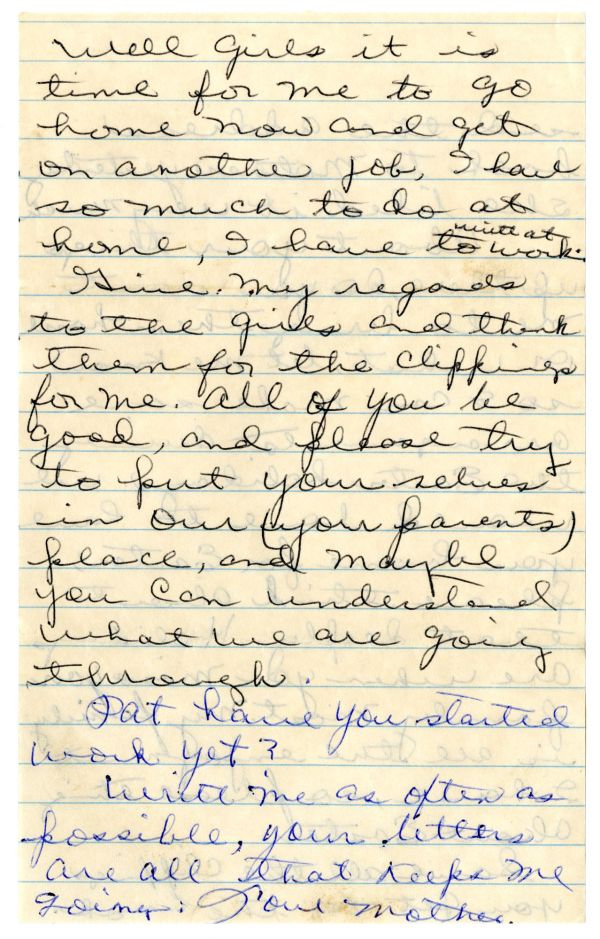 Well Girls it is
time for me to go
home now and get
on another job, I have
so much to do at
home, I have to write at work.
Give. my regards
to the girls and thank
them for the clippings
for me. All of you be
good, and please try
to put your selves
in our (your parents)
place, and maybe
you can understand
what we are going
through.
Pat have you started
work yet?
Write me as often as
possible, your letters
are all that keeps me
going. Love Mother.